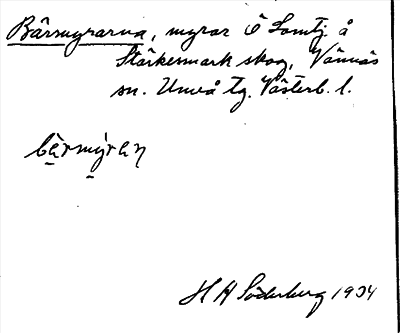 Bärmyrarna, myrar Ö Lomtj. å
Stärkesmark skog, Vännäs
sn. Umeå tg. Västerb. l.
bärmýran
H A Söderberg 1934